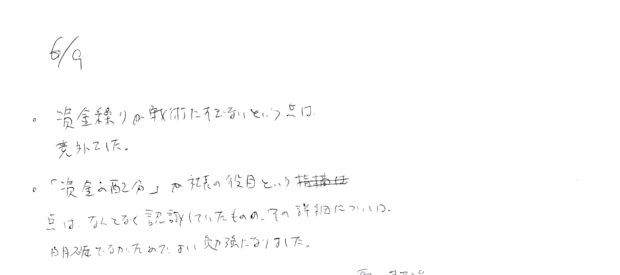 6/9
・資金繰りが戦術にすぎないという点は
意外でした。
・「資金の配分」が社長の役目という
点は、なんとなく認識していたものの、その詳細については、
明確でなかったため、よい勉強になりました。